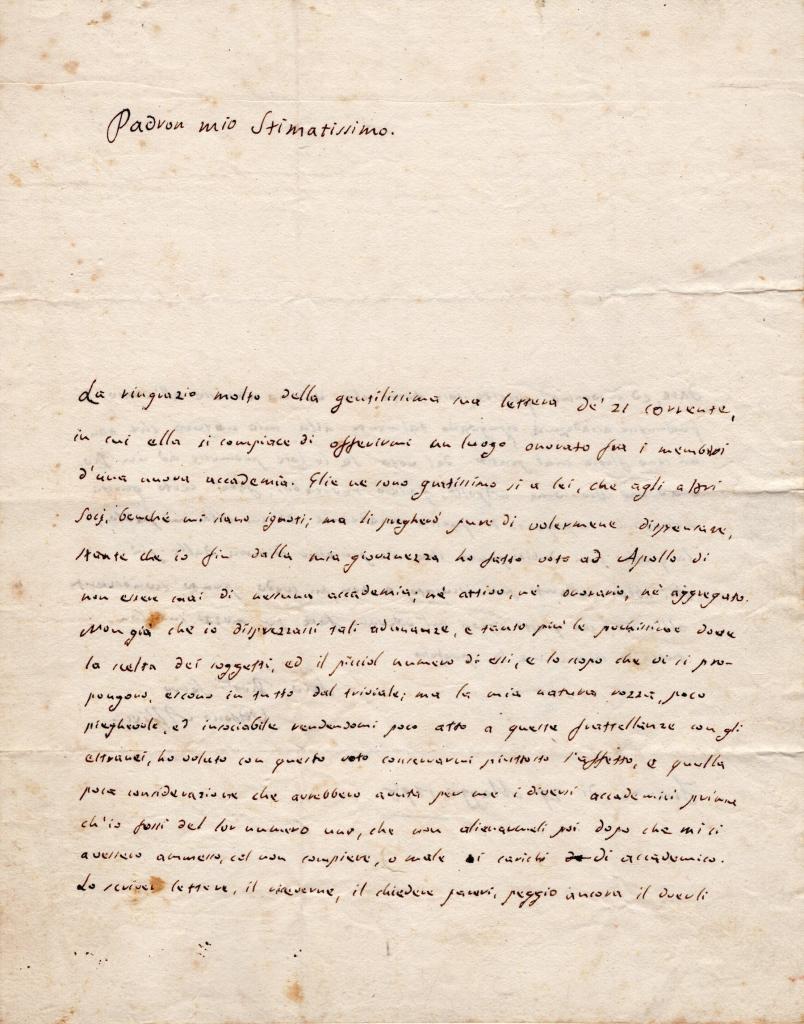 Padron mio Stimatissimo.
La ringrazio molto della gentilissima sua lettera de' 21 corrente,
in cui ella si compiace di offerirmi un luogo onorato fra i membri
d'una nuova accademia. Glie ne sono gratissimo sì a lei, che agli altri
Socj, benchè mi siano ignoti; ma li pregherò pure di volermene dispensare,
stante che io fin dalla mia giovanezza ho fatto voto ad Apollo di
non essere mai di nessuna accademia; nè attivo, nè onorario, nè aggregato.
Non già che io disprezzassi tali adunanze, e tanto più le pochissime dove
la scelta dei soggetti, ed il picciol numero di essi, e lo scopo che vi si pro-
pongono, escono in tutto dal triviale; ma la mia natura rozza, poco
pieghevole, ed insociabile rendendomi poco atto a queste frattellanze con gli
estranei, ho voluto con questo voto conservarmi piuttosto l'affetto, e quella
poca considerazione che avrebbero avuta per me i diversi accademici prima
ch'io fossi del lor numero uno, che non alienarmeli poi dopo che mi ci
avessero ammesso, col non compiere, o male i carichi di accademico.
Lo scriver lettere, il riceverne, il chiedere pareri, peggio ancora il doverli